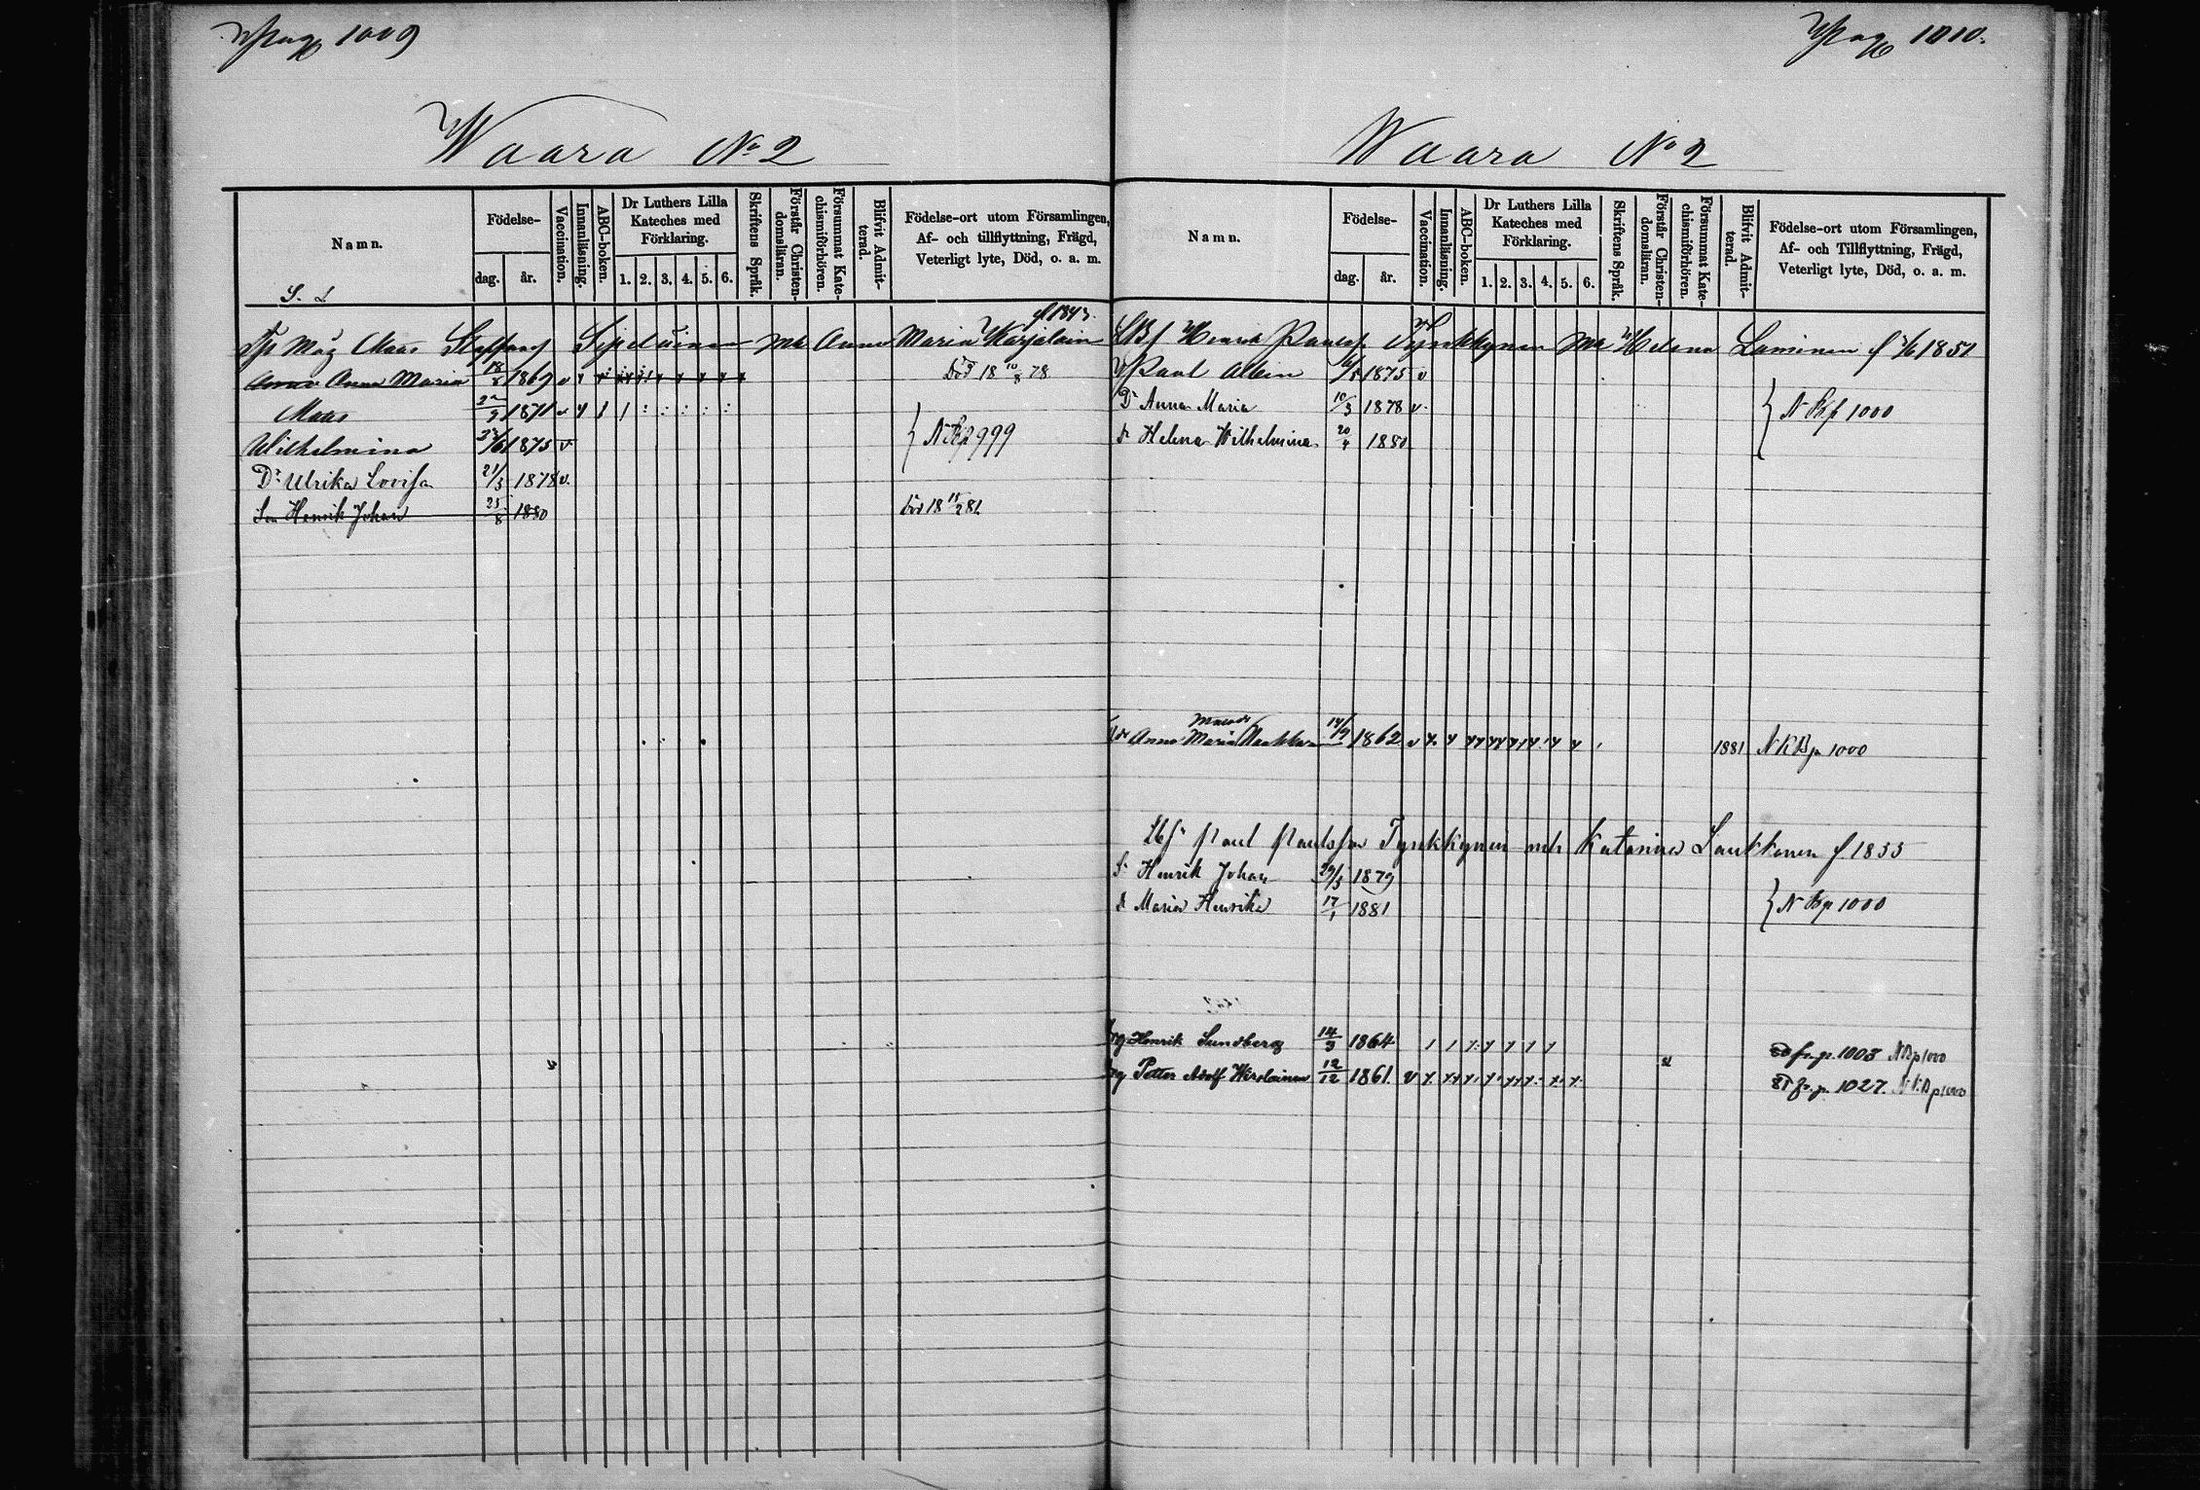 Pag 1009
Waara No 2
Namn.
Födelse-
dag.
år.
Vaccination.
Innanläsning.
ABC-boken.
Dr Luthers Lilla
Kateches med
Förklaring.
1. 2. 3. 4. 5. 6.
Skriftens Språk.
Förstår Christen-
domsläran.
Försummat Kate-
chismiförhören.
Blifvit Admit-
terad.
Födelse-ort utom Församlingen,
Af- och tillflyttning, Frägd,
Veterligt lyte, Död, o. a. m.
f 1843.
Måg Mats Staffans Sipeläinen Anna Maria Karjalain
Anna Maria 18/8 1869 v död 18 10/8 78
Mats 1871 v
Wilhelmina 1875 v
} N Kp 999
Dr Ulrika Lovisa 21/3 1878 v.
Son Henrik Johan 25/8 1880 död 18 81
Pag 1010.
Waara No 2
Namn.
Födelse-
dag.
år.
Vaccination.
Innanläsning.
ABC-boken.
Dr Luthers Lilla
Kateches med
Förklaring.
1. 2. 3. 4. 5. 6.
Skriftens Språk.
Förstår Christen-
domsläran.
Försummat Kate-
chismiförhören.
Blifvit Admit-
terad.
Födelse-ort utom Församlingen,
Af- och Tillflyttning, Frägd,
Veterligt lyte, Död, o. a. m.
Henrik Tyrkkynen Helena Laminen f 1851
Paul 1875 v
Dr Anna Maria 10/3 1878 v. } N Kp 1000
dr Helena Wilhelmina 20/4 1880
Anna Maria 14/9 1862 v 1881 N KB p 1000
Paul Paulsson Tyrkkynen och Katarina Laukkanen f. 1855
Sn Henrik Johan 29/3 1879
dr Maria Henrika 17/1 1881 } N Bp 1000
Drg Henrik Sundberg 14/9 1864 80 fr. p. 1003 N Bp 1000
Drg Petter Adolf 12/12 1861. v 81 fr. p. 1027. N K.B p 1000